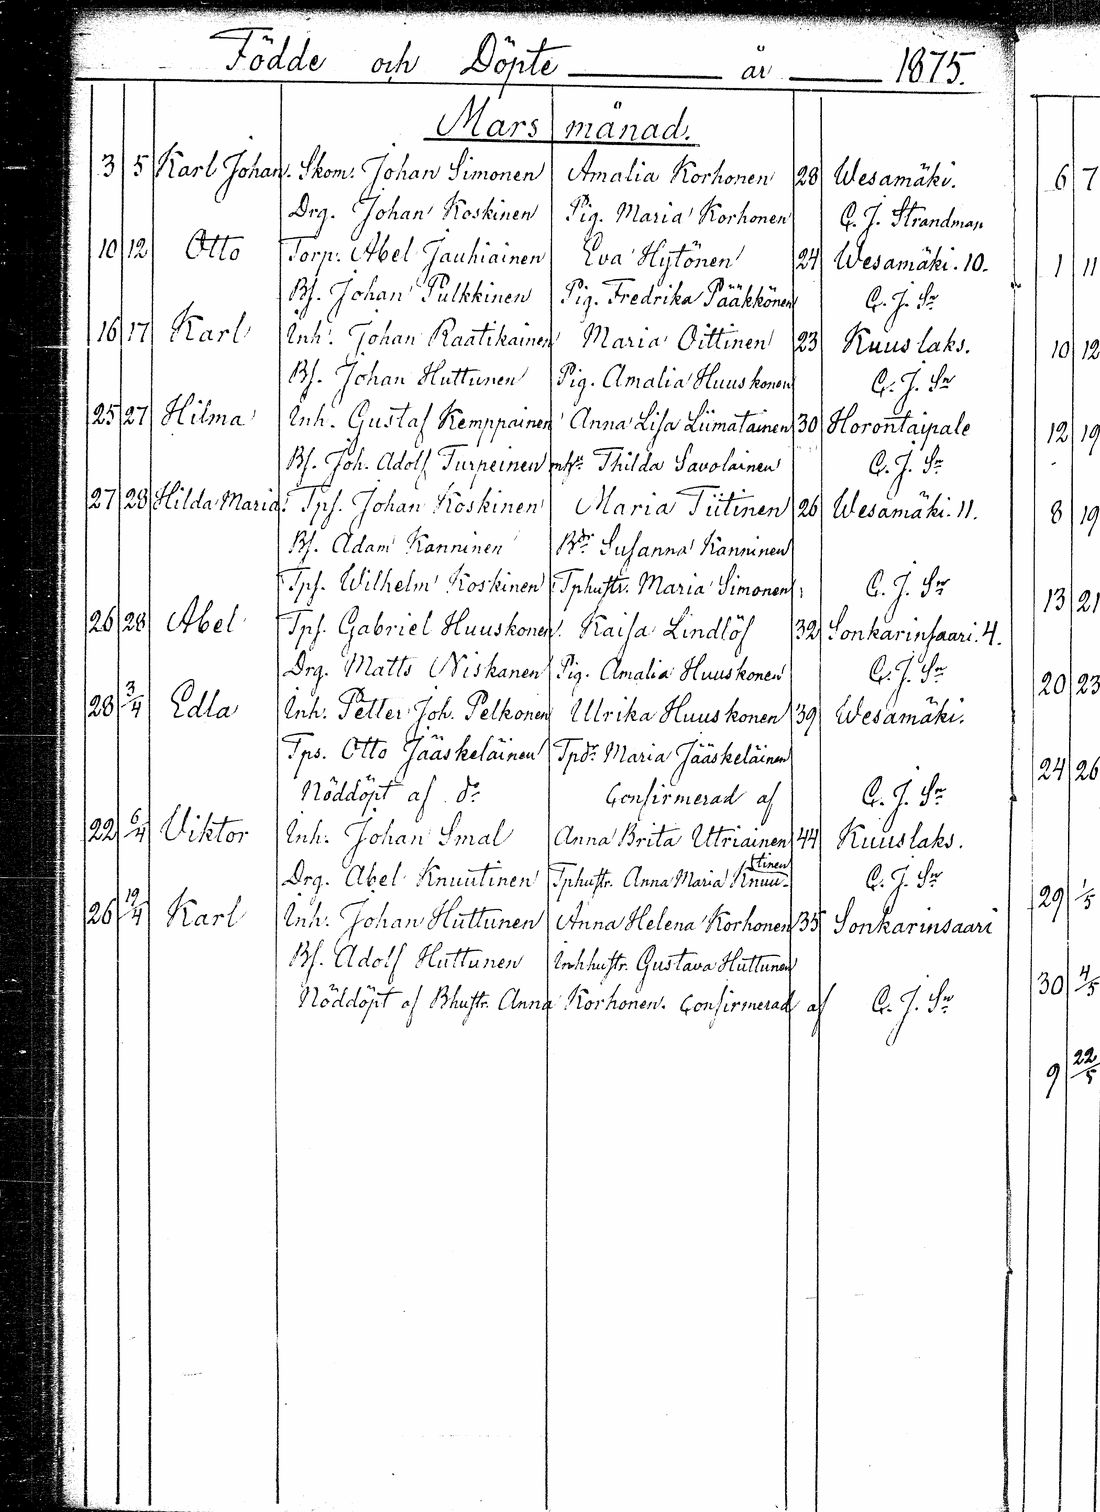 Födde och Döpte år 1875.
Mars månad.
3 5 Karl Johan. Skom. Johan Simonen Amalia Korhonen 28 Wesamäki.
Drg. Johan Koskinen Pig. Maria Korhonen C. J. Strandman
10 12 Otto Torp. Abel Jauhiainen Eva Hytönen 24 Wesamäki. 10.
Bs. Johan Pulkkinen Pig. Fredrika Pääkkönen C. J. Sn
16 17 Karl Inh. Johan Raatikainen Maria Oittinen 23 Kuuslaks.
Bs. Johan Huttunen Pig. Amalia Huuskonen C. J. Sn
25 27 Hilma Inh. Gustaf Kemppainen Anna Lisa Liimatainen 30 Horontaipale
Bs. Joh. Adolf Turpeinen Thilda Savolainen C. J. Sn
27 28 Hilda Maria. Tps. Johan Koskinen Maria Tiitinen 26 Wesamäki. 11.
Bs. Adam Kanninen Bdr Susanna Kanninen
Tps. Wilhelm Koskinen Tphustr. Maria Simonen C. J. Sn
26 28 Abel Tps. Gabriel Huuskonen. Kaisa Lindlöf 32 Sonkarinsaari. 4.
Drg. Matts Niskanen Pig. Amalia Huuskonen C. J. Sn
28 3/4 Edla Inh. Petter Joh. Pelkonen Ulrika Huuskonen 39 Wesamäki.
Tps. Otto Jääskeläinen Tpdr Maria Jääskeläinen
Nöddöpt af do Confirmerad af C. J. Sn
22 6/4 Viktor Inh. Johan Smal Anna Brita Utriainen 44 Kuuslaks.
Drg. Abel Knuutinen Tphustr. Anna Maria Knuu-tinen C. J. Sn
26 19/4 Karl Inh. Johan Huttunen Anna Helena Korhonen 35 Sonkarinsaari
Bs. Adolf Huttunen Inhhustr. Gustava Huttunen
Nöddöpt af Bhustr. Anna Korhonen. Confirmerad af C. J. Sn
6 7
1 11
10 12
12 19
8 19
13 21
20 23
24 26
29 1/5
30 4/5
9 22/5